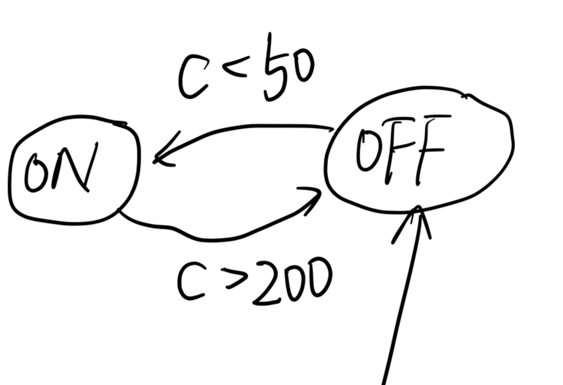 C < 50
ON
OFF
C > 200